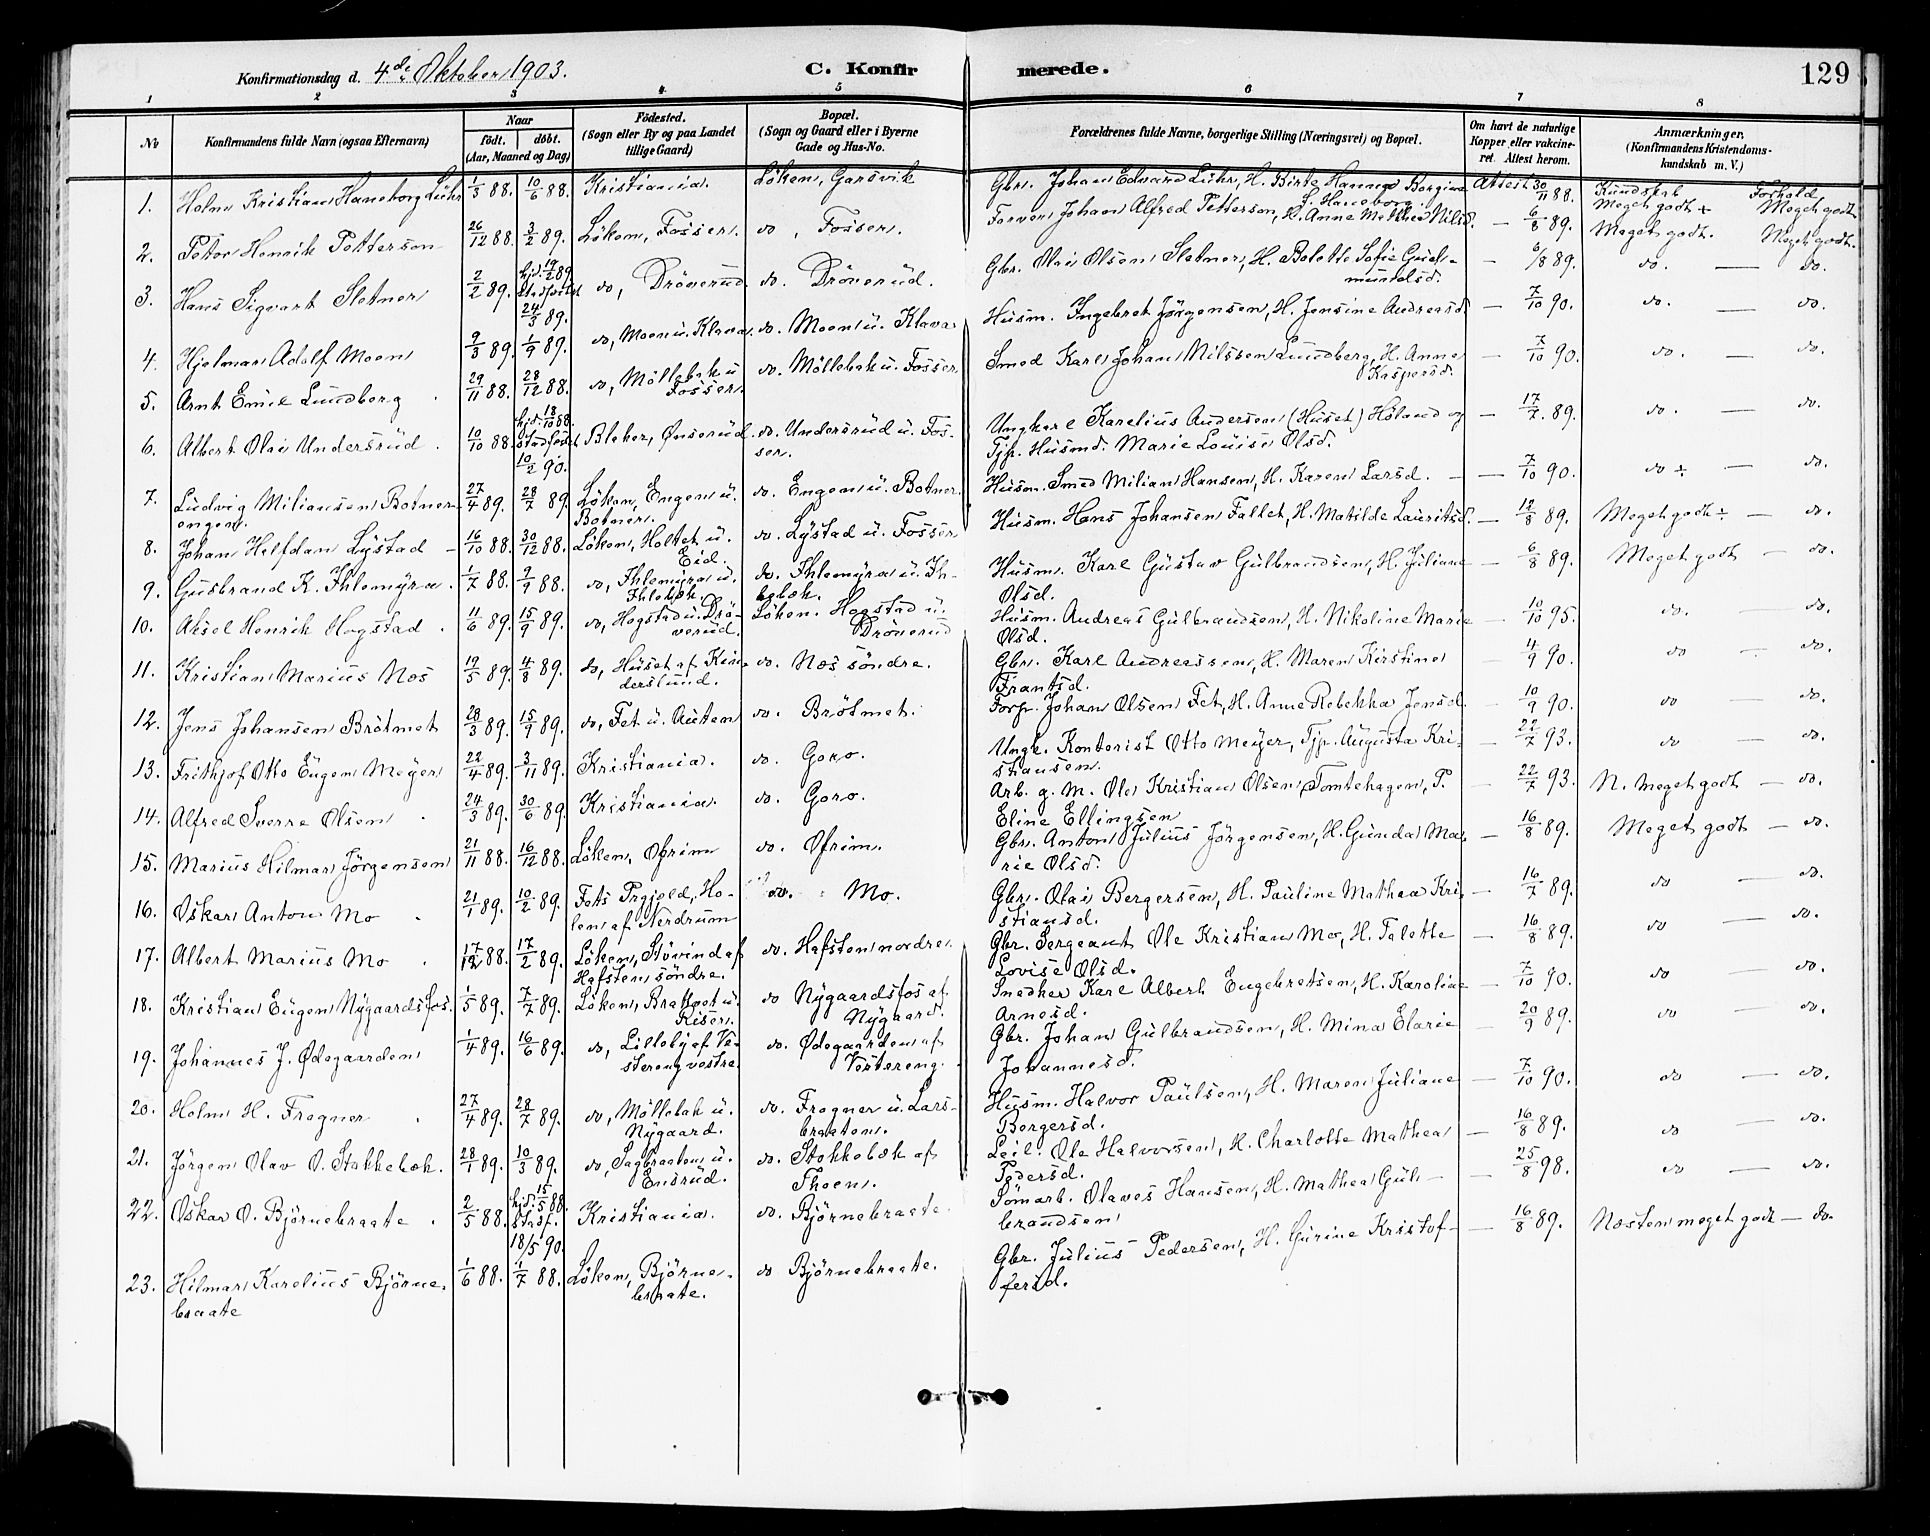 129
Konfirmationsdag d. 4de Oktober 1903.
C. Konfirmerede.
1 2 3 4 5 6 7 8
No
Konfirmandens fulde Navn (ogsaa Efternavn)
Naar
født. døbt.
(Aar, Maaned og Dag)
Fødested.
(Sogn eller By og paa Landet
tillige Gaard)
Bopæl.
(Sogn og Gaard eller i Byerne
Gade og Hus-No.
Forældrenes fulde Navne, borgerlige Stilling (Næringsvei) og Bopæl.
Om havt de naturlige
Kopper eller vakcine-
ret. Attest herom.
Anmærkninger.
(Konfirmandens Kristendoms-
kundskab m. V.)
Kundskab Forhold
1. Holm Kristian Haneborg Lühr 1/3 88. 10/6 88. Kristiania. Löken, Garsvik Gbr. Johan Edvard Lühr, H. Birte Hanna Borgine Attest 30/11 88. Meget godt + Meget godt
f. Haneborg.
2. Petter Henrik Petterson 26/12 88. 3/2 89. Löken, Fosser. do, Fosser. Farver Johan Alfred Petterson, H. Anne Mathea Nilsd. — 6/8 89. Meget godt. Meget godt.
3. Hans Sigvart Sletner 2/2 89. hjd. 19/2 89 Stadfæstet 24/3 89. do, Dröverud. do. Dröverud. Gbr. Olai Olsen Sletner, H. Bolette Sofie Gud-
mundsd. — 6/8 89. do. — do.
4. Hjelmar Adolf Moen 9/3 89. 1/9 89. do, Moen u. Klava. do. Moen u. Klava Husm. Ingebret Jörgensen, H. Jensine Andreasd. — 7/10 90. do. — do.
5. Arnt Emil Lundberg 29/11 88. 28/12 88. do, Möllebæk u.
Fosser. do. Möllebæk u. Fosser. Smed Karl Johan Nilssen Lundberg, H. Anne
Kaspersd. — 7/10 90. do. — do.
6. Albert Olai Undersrud 10/10 88. hjd. 18/10 88. Stadfæstet 10/2 90. Blaker, Önserud do. Undersrud u. Fos-
ser. Ungkarl Karelius Andersen (Huset) Höland og
Tjp. Husmd. Marie Louise Olsd. — 17/7 89. do. — do.
7. Ludvig Miliansen Botner-
engen. 27/4 89. 28/7 89. Löken, Engen u.
Botner. do. Engen u. Botner. Husm. Smed Milian Hansen, H. Karen Larsd. — 7/10 90. do ÷ — do.
8. Johan Helfdan Lystad 16/10 88. 30/12 88. Löken, Holtet u.
Eid. do. Lystad u. Fosser Husm. Hans Johansen Fallet, H. Matilde Lauritsd. — 12/8 89. Meget godt ÷ — do.
9. Gusbrand K. Ihlemyra. 1/7 88. 9/9 88. do, Ihlemyra u.
Ihlebæk. do. Ihlemyra u. Ih-
lebæk. Husm. Karl Gustav Gulbrandsen, H. Juliane
Olsd. — 6/8 89. Meget godt — do.
10. Aksel Henrik Hogstad. 11/6 89. 15/9 89. do, Hogstad u. Drö-
verud. Löken. Hogstad u.
Dröverud Husm. Andreas Gulbrandsen, H. Nikoline Marie
Olsd. — 10/10 95. do. — do.
11. Kristian Marius Næs 19/5 89. 4/8 89. do, Huset af Kin-
derslund. do. Næs söndre. Gbr. Karl Andreassen, H. Maren Kirstine
Frantsd. — 4/9 90. do — do.
12. Jens Johansen Brötmet 28/3 89. 15/9 89. do, Fet u. Auten do. Brötmet. Forp. Johan Olsen Fet, H. Anne Rebekka Jensd. — 10/9 90. do — do.
13. Frithjof Otto Eugen Meyer 22/4 89. 3/11 89. Kristiania. do. Goro. Ungk. Kontorist Otto Meyer, Tjp. Augusta Kri-
stiansen. — 22/7 93. do — do.
14. Alfred Sverre Olsen 24/3 89. 30/6 89. Kristiania. do. Goro. Arb. g. M. Ole Kristian Olsen Tomtehagen, P.
Eline Ellingsen — 22/7 93. N. meget godt — do.
15. Marius Hilmar Jörgensen 21/11 88. 16/12 88. Löken, Ofrim do. Ofrim. Gbr. Anton Julius Jörgensen, H. Gunda Ma-
rie Olsd. — 16/8 89. Meget godt — do.
16. Oskar Anton Mo 21/1 89. 10/2 89. Fets Prgjeld, Ho-
len af Nerdrum do. Mo. Gbr. Olai Bergersen, H. Pauline Mathea Kri-
stiansd. — 16/7 89. do — do.
17. Albert Marius Mo 17/12 88. 17/2 89. Löken, Stövind af
Hafsten söndre. do. Hafsten nordre. Gbr. Sergeant Ole Kristian Mo, H. Talette
Lovise Olsd. — 16/8 89. do — do.
18. Kristian Eugen Nygaardsfos. 1/5 89. 7/7 89. Löken, Brattvet u.
Riser. do Nygaardsfos af
Nygaard. Snedker Karl Albert Engebretsen, H. Karoline
Arnesd. — 7/10 90. do — do.
19. Johannes J. Ødegaarden 1/4 89. 16/6 89. do, Lilleby af Ve-
stereng vestre. do. Ødegaarden af
Vestereng. Gbr. Johan Gulbrandsen, H. Mina Elarie
Johannesd. — 20/9 89. do — do.
20. Holm H. Fregner 27/4 89. 28/7 89. do, Möllebæk u.
Nygaard. do. Fregner u. Lars-
braaten. Husm. Halvor Paulsen, H. Maren Juliane
Bergersd. — 7/10 90. do — do.
21. Jörgen Olav O. Stokkebæk. 28/1 89. 10/3 89. do, Sagbraaten u.
Ensrud. do. Stokkebæk af
Thoen. Leil. Ole Halvorsen, H. Charlotte Mathea
Pedersd. — 16/8 89. do — do.
22. Oskar O. Björnebraate 2/5 88. hjd. 15/5 88. Stadf. 18/5 90. Kristiania. do. Björnebraate. Tömarb. Olaves Hansen, H. Mathea Gul-
brandsen — 25/8 98. do — do.
23. Hilmar Karelius Björne-
braate 1/6 88. 1/7 88. Löken, Björne-
braate. do Björnebraate. Gbr. Julius Pedersen, H. Gurine Kristof-
fersd. — 16/8 89. Næsten meget godt — do.